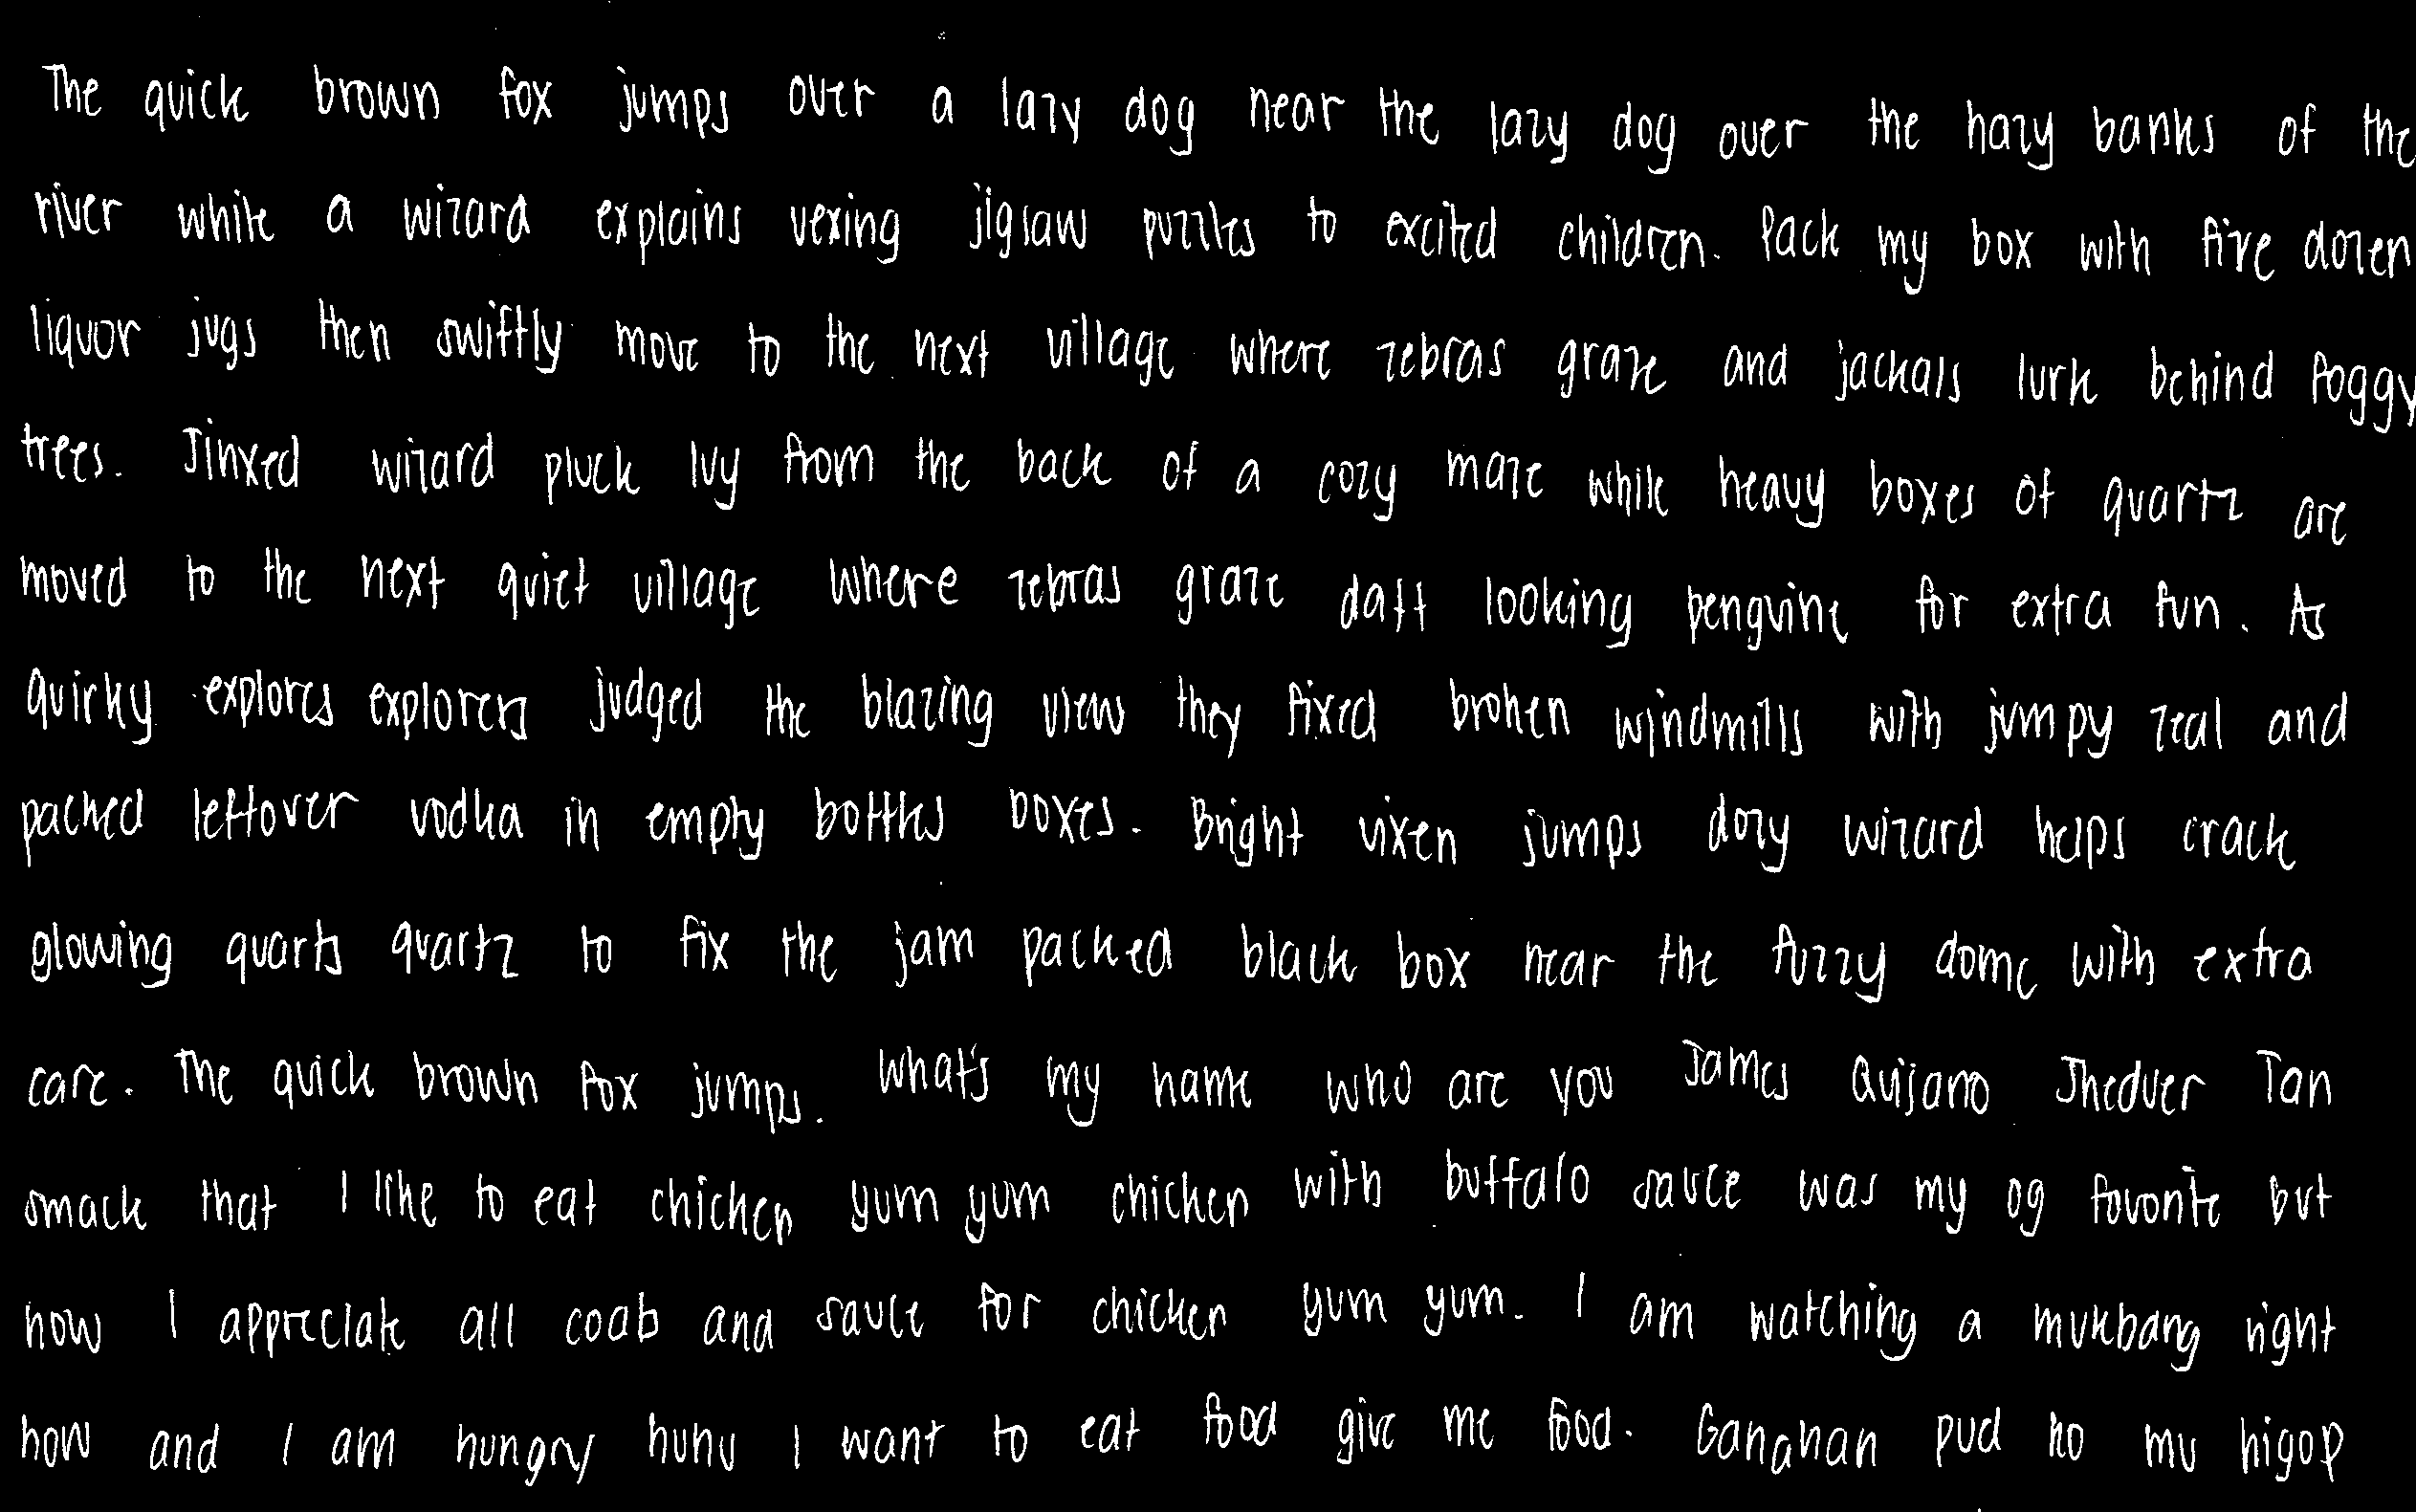 The quick brown fox jumps over a lazy dog near the lazy dog over the hazy banks of the
river while a wizard explains vexing jigsaw puzzles to excited children. Pack my box with five dozen
liquor jugs then swiftly move to the next village where zebras graze and jackals lurk behind foggy
trees. Jinxed wizard pluck Ivy from the back of a cozy maze while heavy boxes of quartz are
moved to the next quiet village where zebras graze daft looking penguins for extra fun. As
quirky explores explorers judged the blazing view they fixed broken windmills with jumpy zeal and
packed leftover vodka in empty bottles boxes. Bright vixen jumps dozy wizard helps crack
glowing quarts quartz to fix the jam packed black box near the fuzzy dome with extra
care. The quick brown fox jumps. What's my name who are you James Quijano Jheduer Tan
smack that I like to eat chicken yum yum chicken with buffalo sauce was my og favorite but
now I appreciate all coab and sauce for chicken yum yum. I am watching a mukbang right
now and I am hungry huhu I want to eat food give me food. Ganahan pud ko mu higop